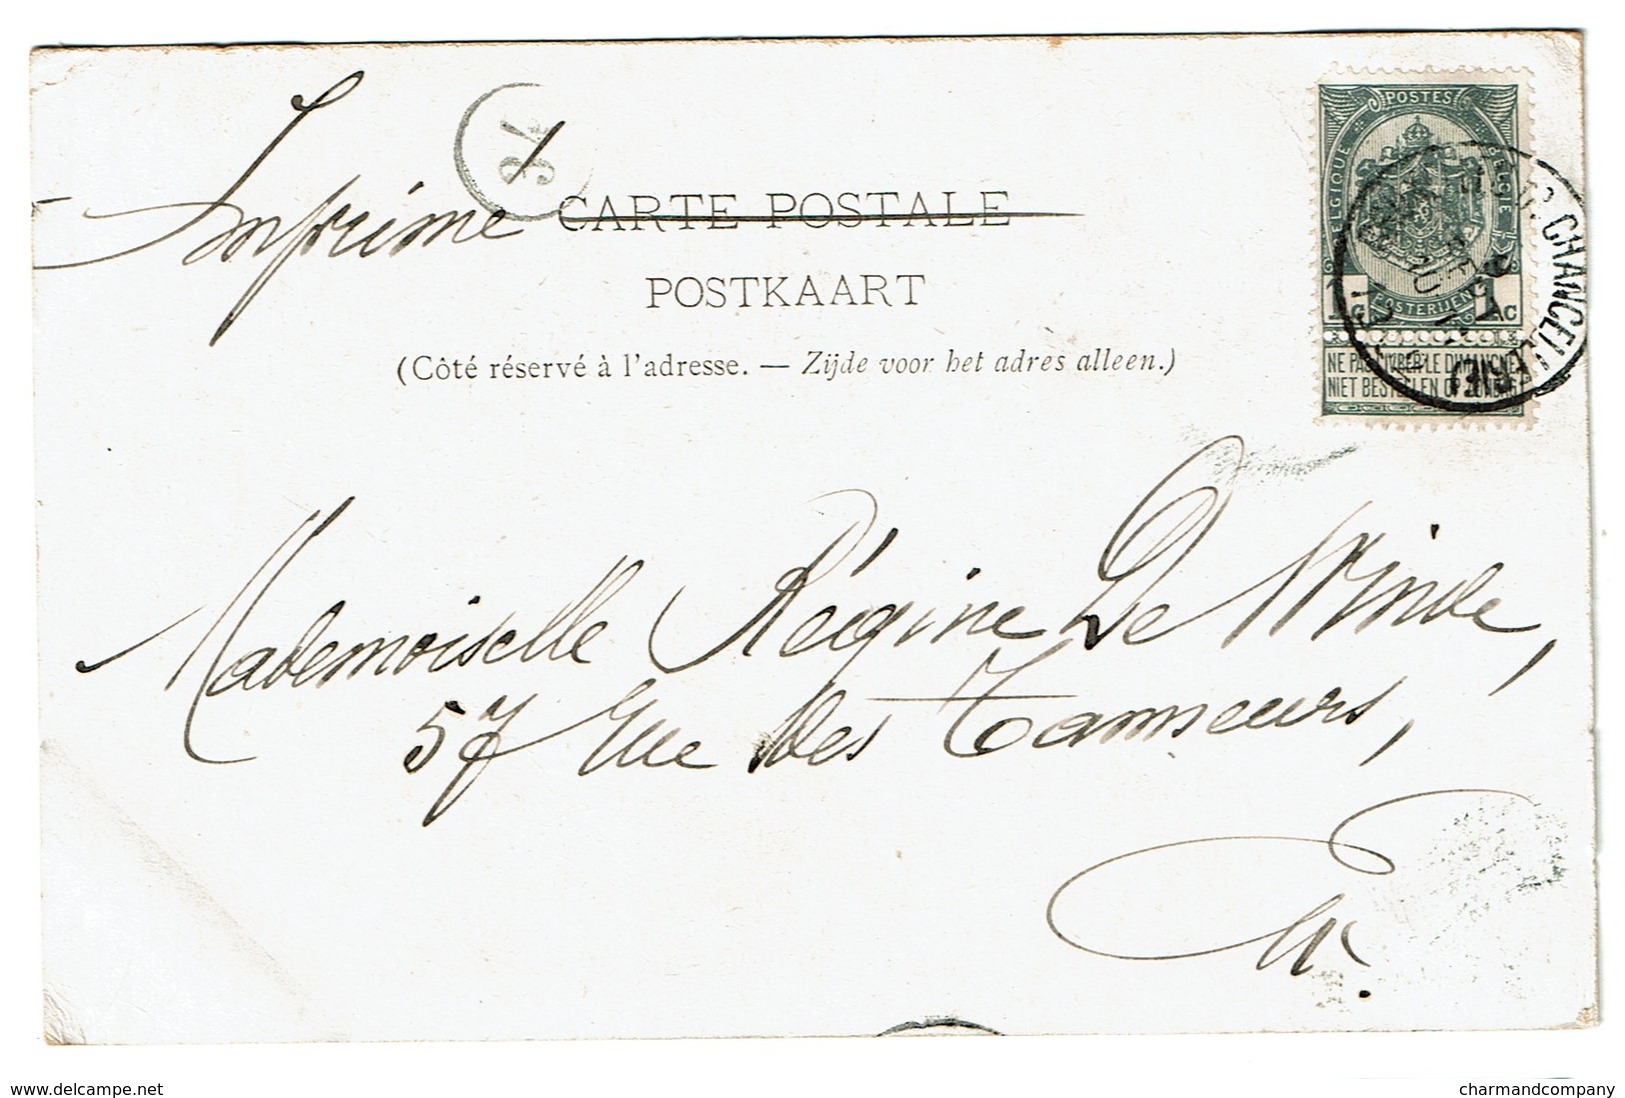 Imprimé
CARTE POSTALE
POSTKAART
(Côté réservé à l'adresse. — Zijde voor het adres alleen.)
POSTES
BELGIQUE
BELGIË
POSTERIJEN
NE PAS LIVRER LE DIMANCHE
NIET BESTELLEN OP ZONDAG
Mademoiselle Régine De Winde,
57 Rue des Tanneurs,
delcampe.net
charmandcompany